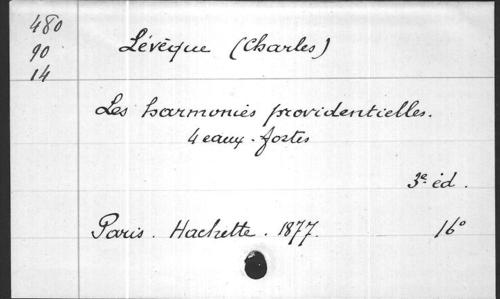 480
90
14
Lévêque (Charles)
Les harmonies providentielles.
4 eaux-fortes
3e éd.
Paris. Hachette. 1877. 16°